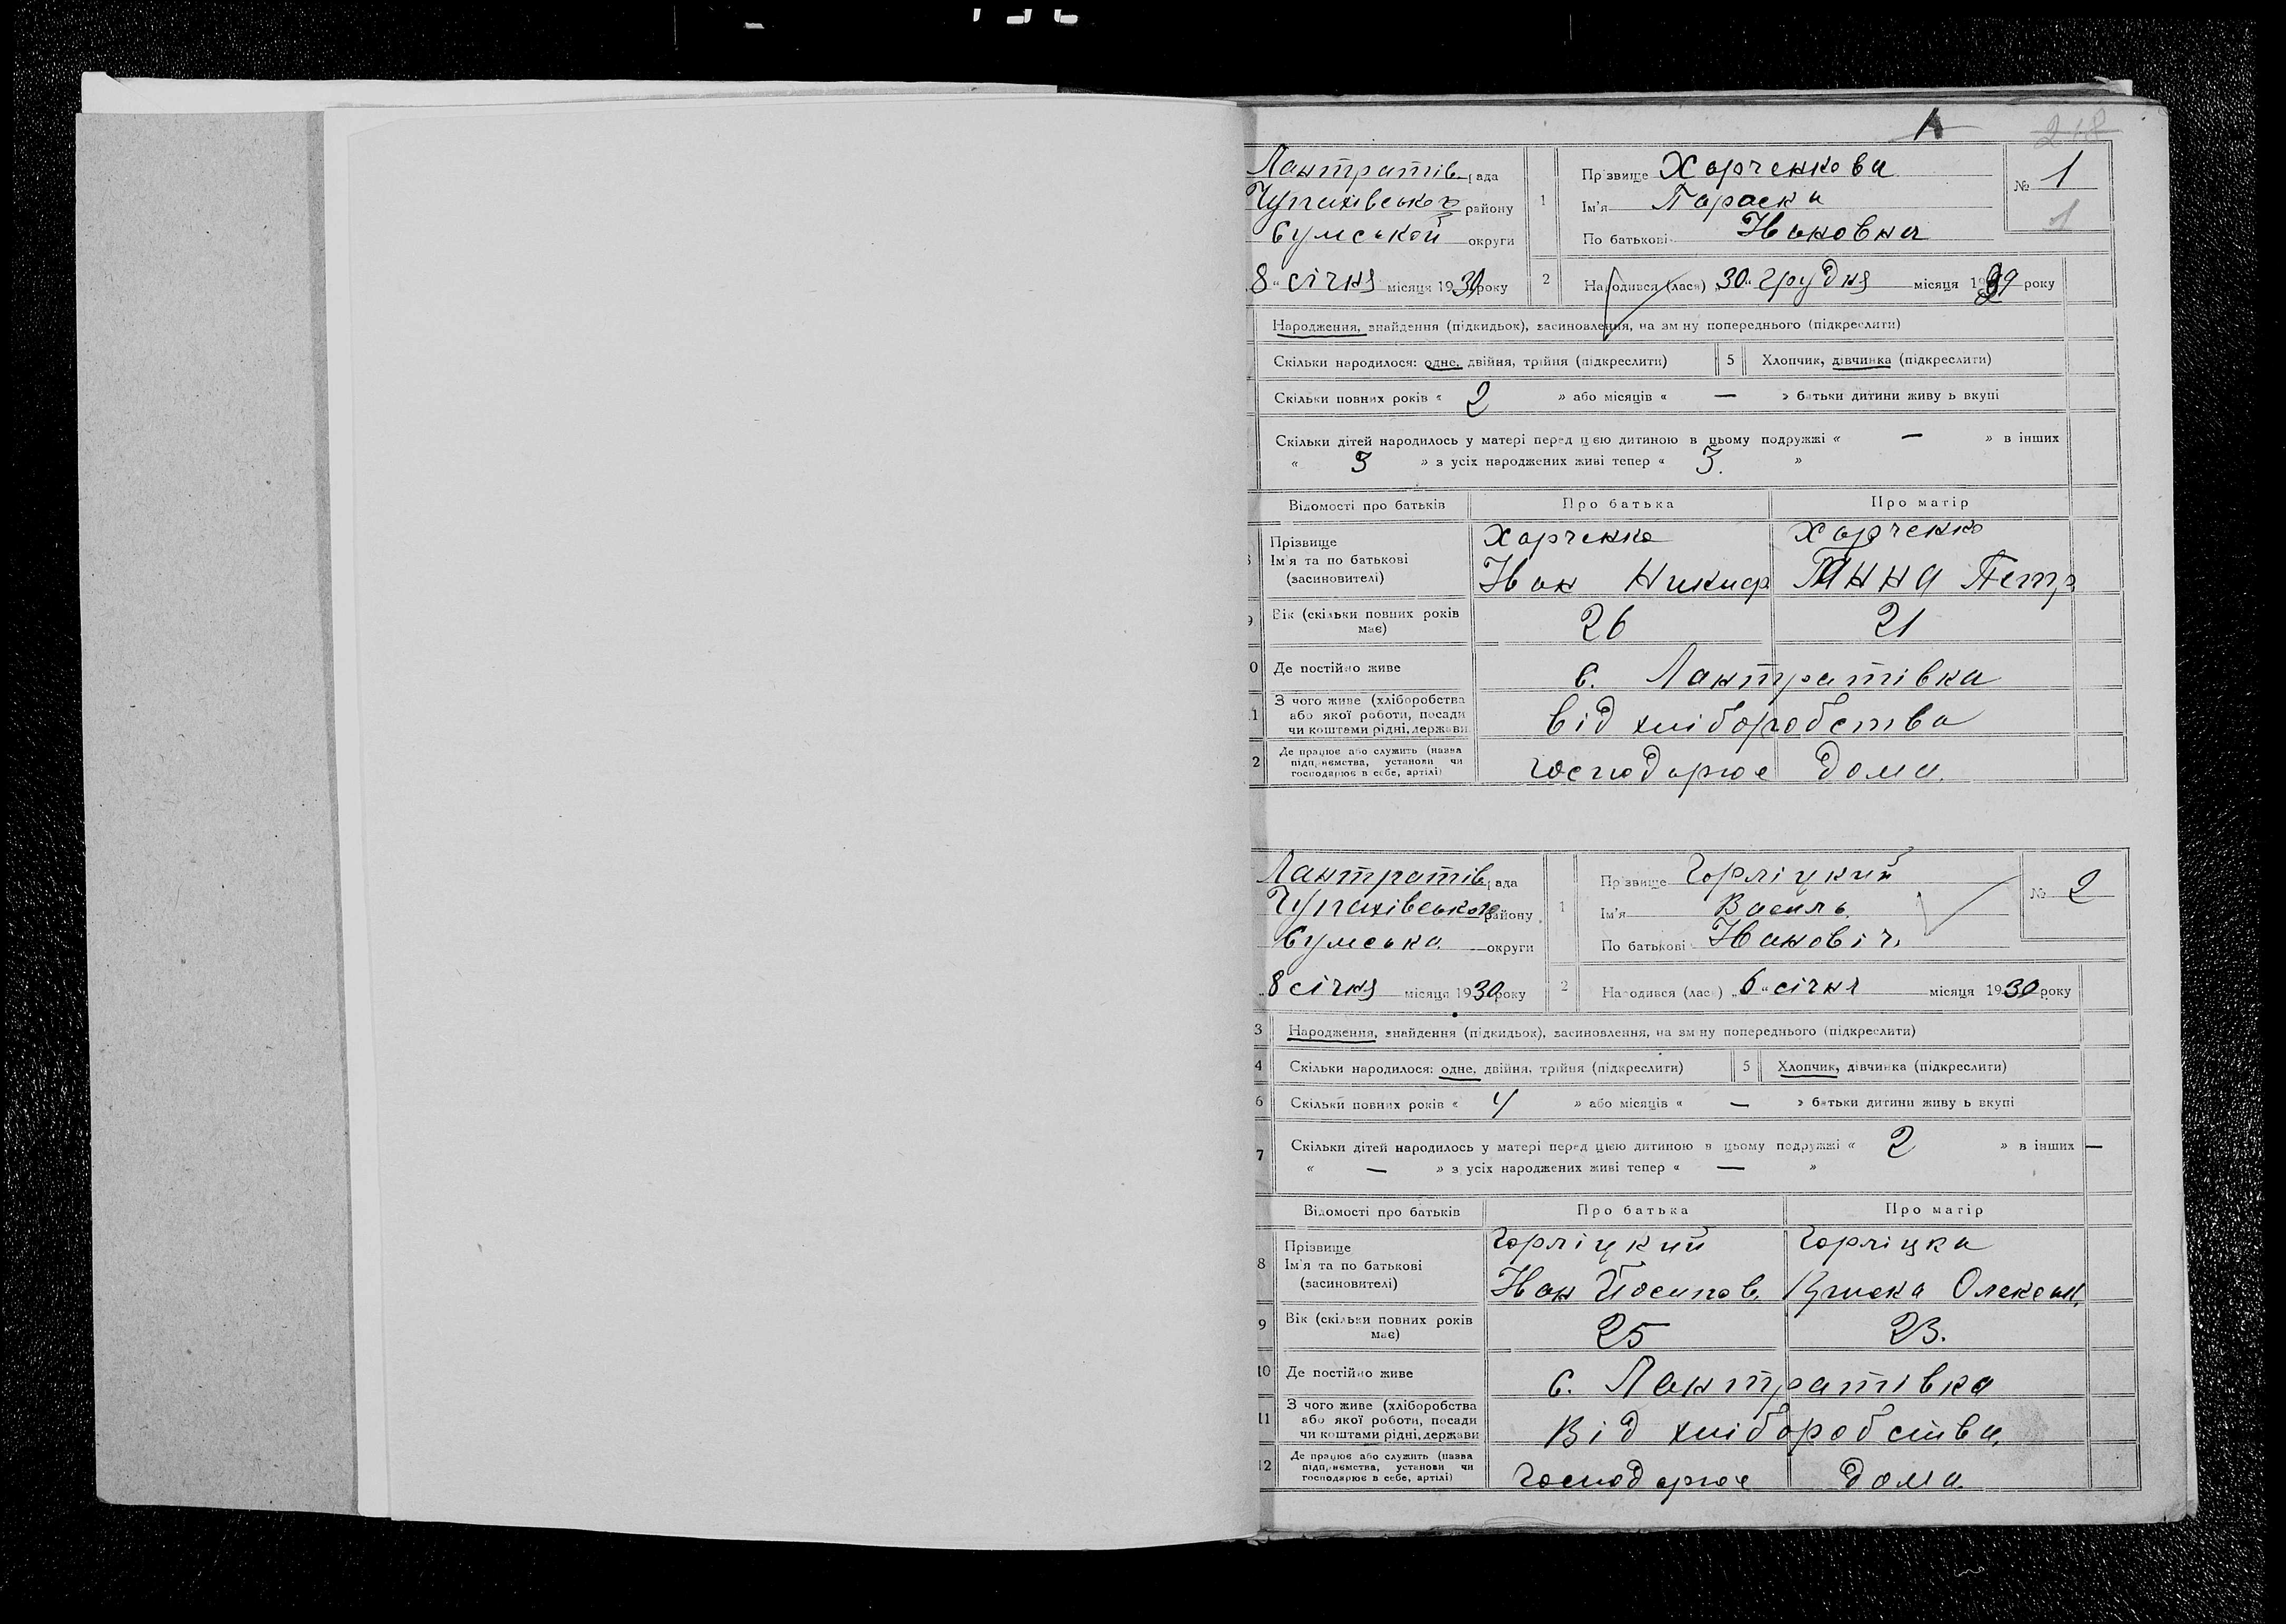 1 218
Лантратів. рада
Чупахівського району
Сумській округи
8 січня місяця 1930 року
1 Прізвище Харченкова
Ім'я Параска
По батькові Ивановна
№ 1
1
2 Народився (лася) 30 грудня місяця 1929 року
Народження, знайдення (підкидьок), засиновлення, на зміну попереднього (підкреслити)
Скільки народилося: одне, двійня, трійня (підкреслити) 5 Хлопчик, дівчинка (підкреслити)
Скільки повних років « 2 » або місяців « — » батьки дитини живуть вкупі
Скільки дітей народилось у матері перед цією дитиною в цьому подружжі « — » в інших
« 3 » з усіх народжених живі тепер « 3. »
Відомості про батьків Про батька Про матір
Прізвище Харченко Харченко
Ім'я та по батькові
(засиновителі) Иван Никиф Анна Петр.
9 Вік (скільки повних років
має) 26 21
0 Де постійно живе с. Лантратівка
11 З чого живе (хліборобства
або якої роботи, посади
чи коштами рідні, держави від хліборобства
2 Де працює або служить (назва
підприємства, установи чи
господарює в себе, артілі) господарює дома.
Лантратів. рада
Чупахівського району
Сумська округи
8 січня місяця 1930 року
1 Прізвище Горліцкий
Ім'я Василь
По батькові Ивановіч.
№ 2
2 Народився (лася) „6" січня місяця 1930 року
3 Народження, знайдення (підкидьок), засиновлення, на зміну попереднього (підкреслити)
4 Скільки народилося: одне, двійня, трійня (підкреслити) 5 Хлопчик, дівчинка (підкреслити)
6 Скільки повних років « 4 » або місяців « — » батьки дитини живуть вкупі
7 Скільки дітей народилось у матері перед цією дитиною в цьому подружжі « 2 » в інших —
« — » з усіх народжених живі тепер « — »
Відомості про батьків Про батька Про матір
8 Прізвище Горліцкий Горліцка
Ім'я та по батькові
(засиновителі) Иван Йосипов. Олексан.
9 Вік (скільки повних років
має) 25 23.
10 Де постійно живе с. Лантратівка
11 З чого живе (хліборобства
або якої роботи, посади
чи коштами рідні, держави Від хліборобства
12 Де працює або служить (назва
підприємства, установи чи
господарює в себе, артілі) Господарює дома.